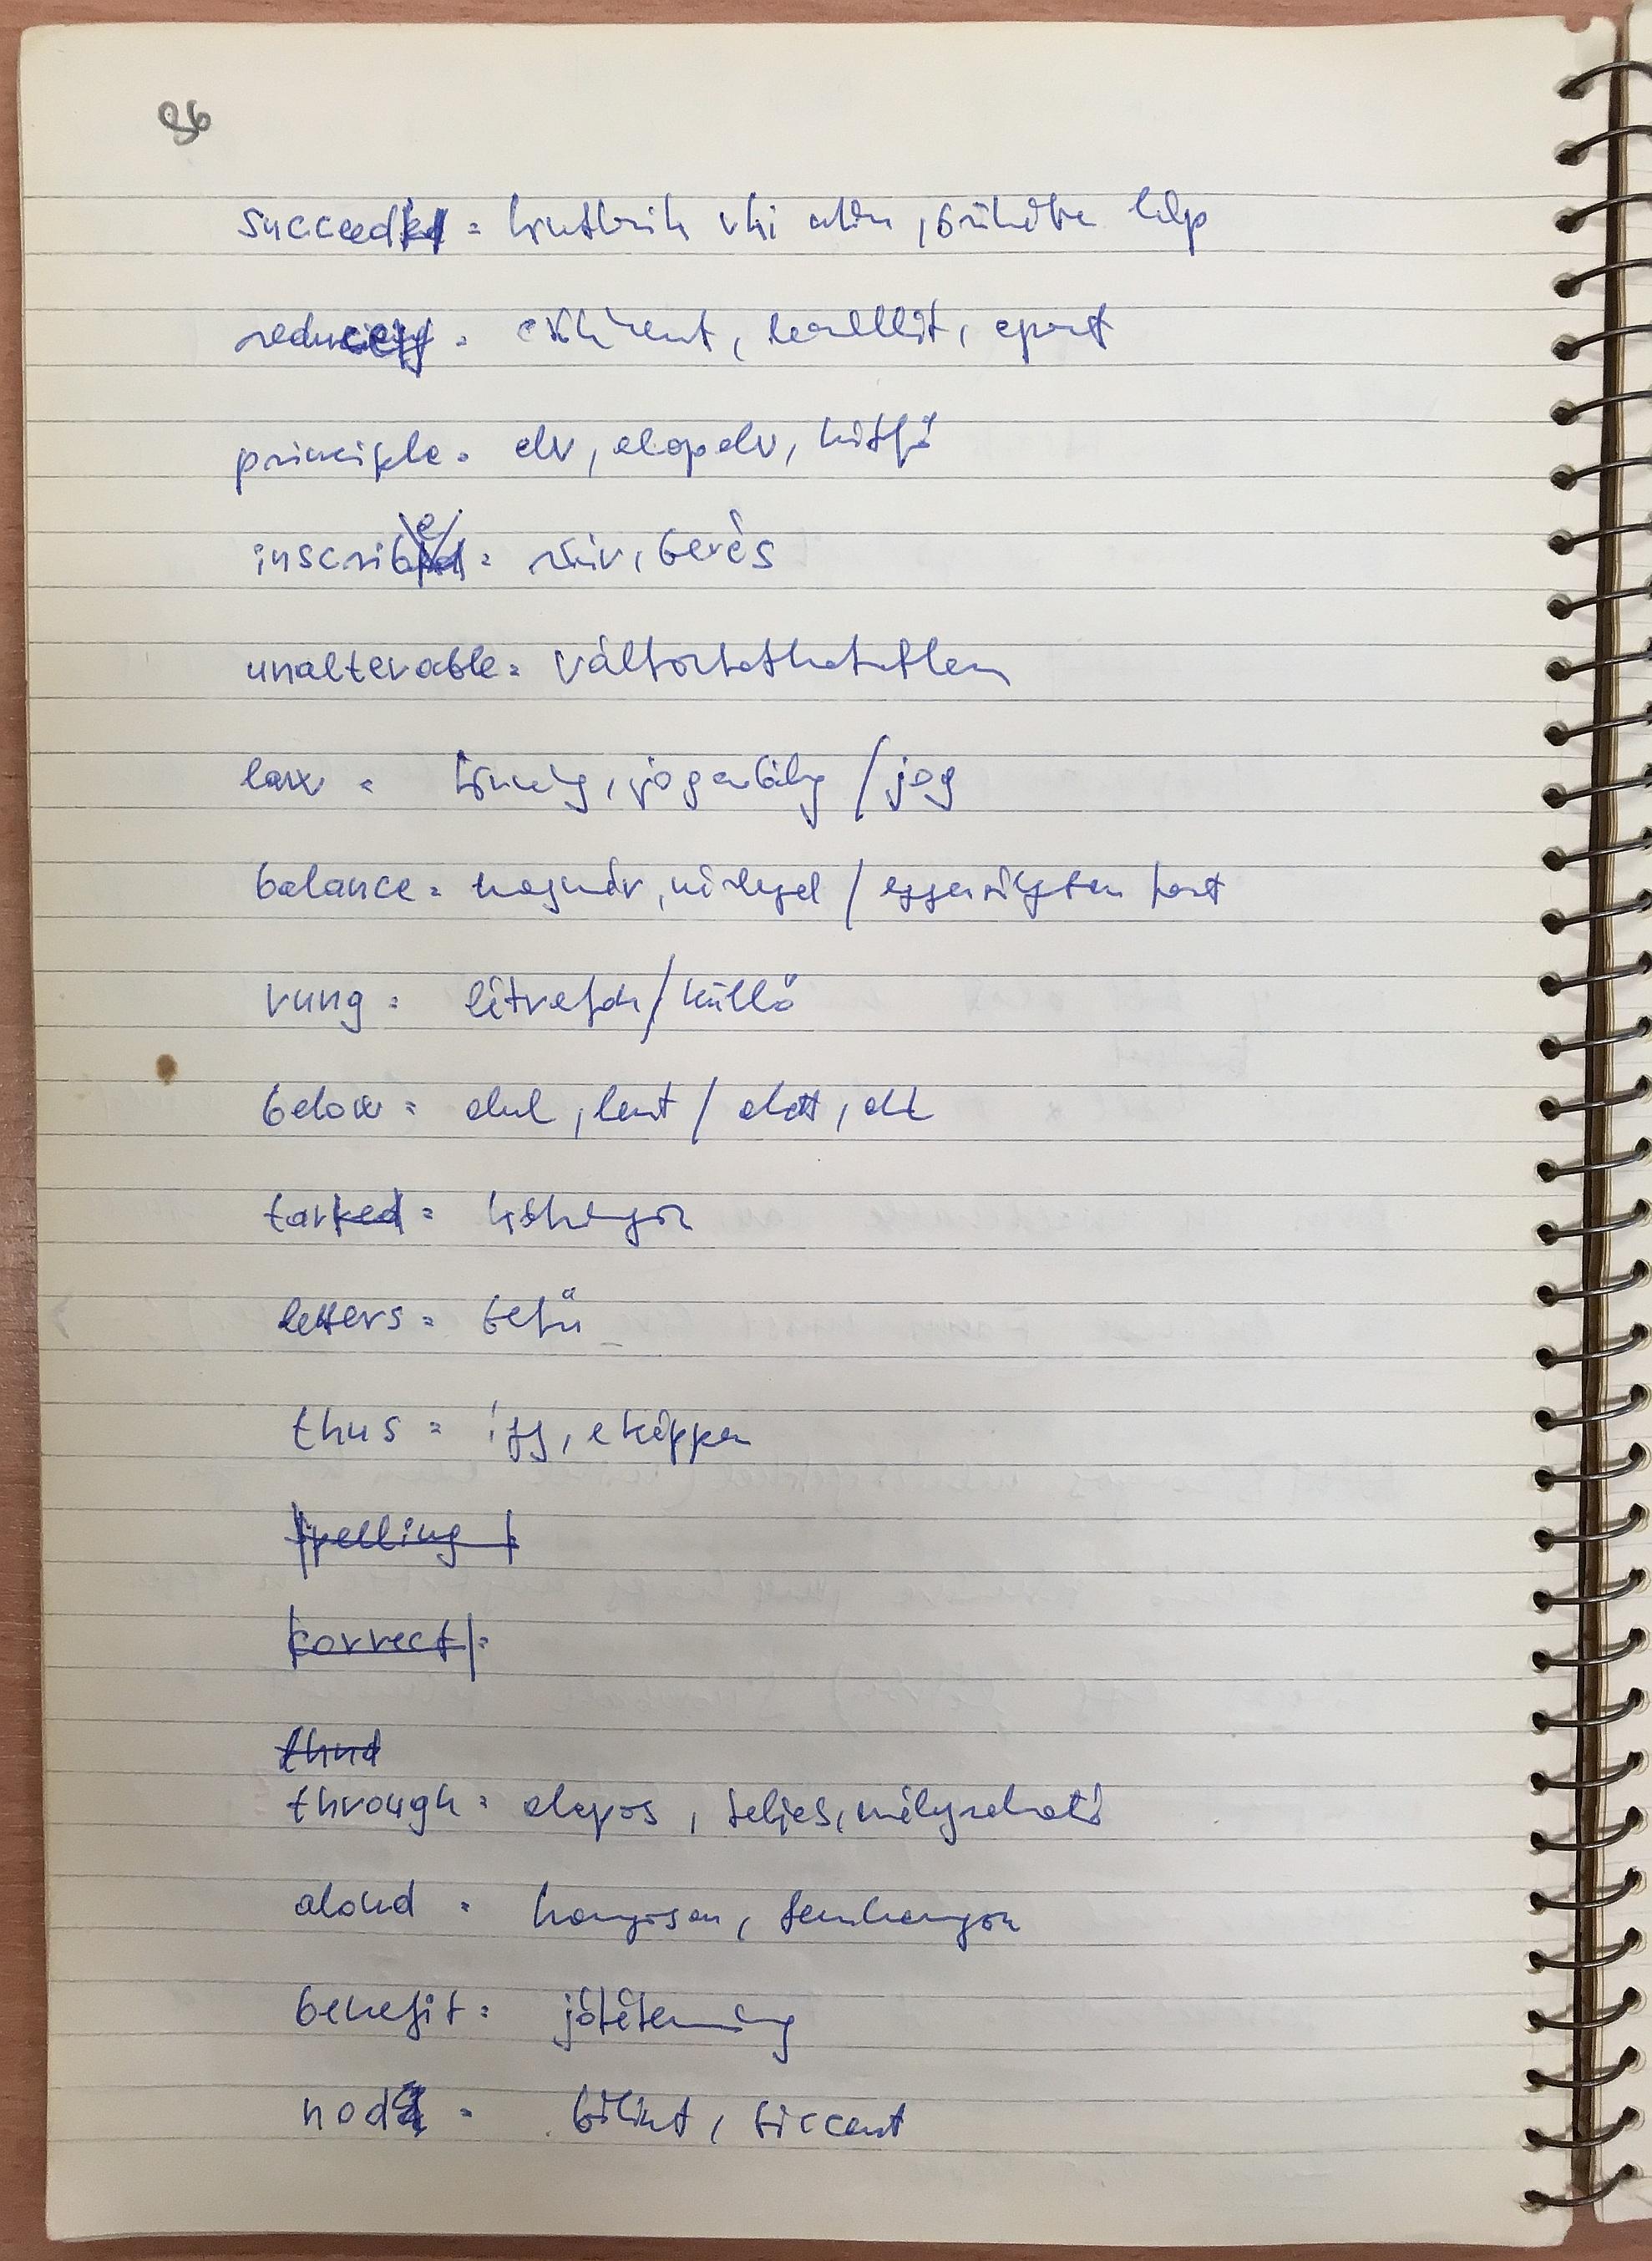 96
succeed = következik vki után, örökébe lép
reduce = csökkent, leszállít, apaszt
principle = elv, alapelv, kútfő
inscribe = ró, ír, bevés
unalterable = változtathatatlan
law = törvény, jogszabály / jog
balance = mérlegel / egyensúlyban tart
rung = létrafok / küllő
below = alul, lent / alatt, alá
tarked =
letters = betű
thus = így, eképpen
spelling
correct =
thud
through = alapos, teljes, mélyreható
aloud = hangosan, fennhangon
benefit = jótétemény
nod = bólint, biccent